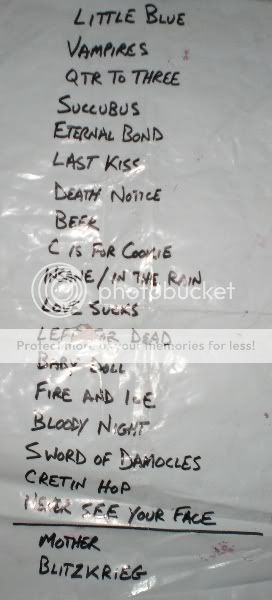 LITTLE BLUE
VAMPIRES
QTR TO THREE
SUCCUBUS
ETERNAL BOND
LAST KISS
DEATH NOTICE
BEER
C IS FOR COOKIE
INSANE/IN THE RAIN
photobucket
LOVE SUCKS
LEFT FOR DEAD
Protect more of your memories for less!
BABY DOLL
FIRE AND ICE
BLOODY NIGHT
SWORD OF DAMOCLES
CRETIN HOP
NEVER SEE YOUR FACE
MOTHER
BLITZKRIEG